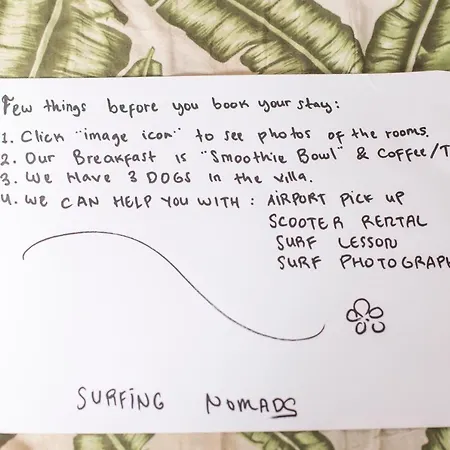 Few things before you book your stay:
1. Click "image icon" to see photos of the rooms.
2. Our Breakfast is "Smoothie Bowl" & Coffee/T
3. We Have 3 DOGS in the villa.
4. WE CAN HELP YOU WITH : AIRPORT PICK UP
SCOOTER RENTAL
SURF LESSON
SURF PHOTOGRAPH
SURFING NOMADS